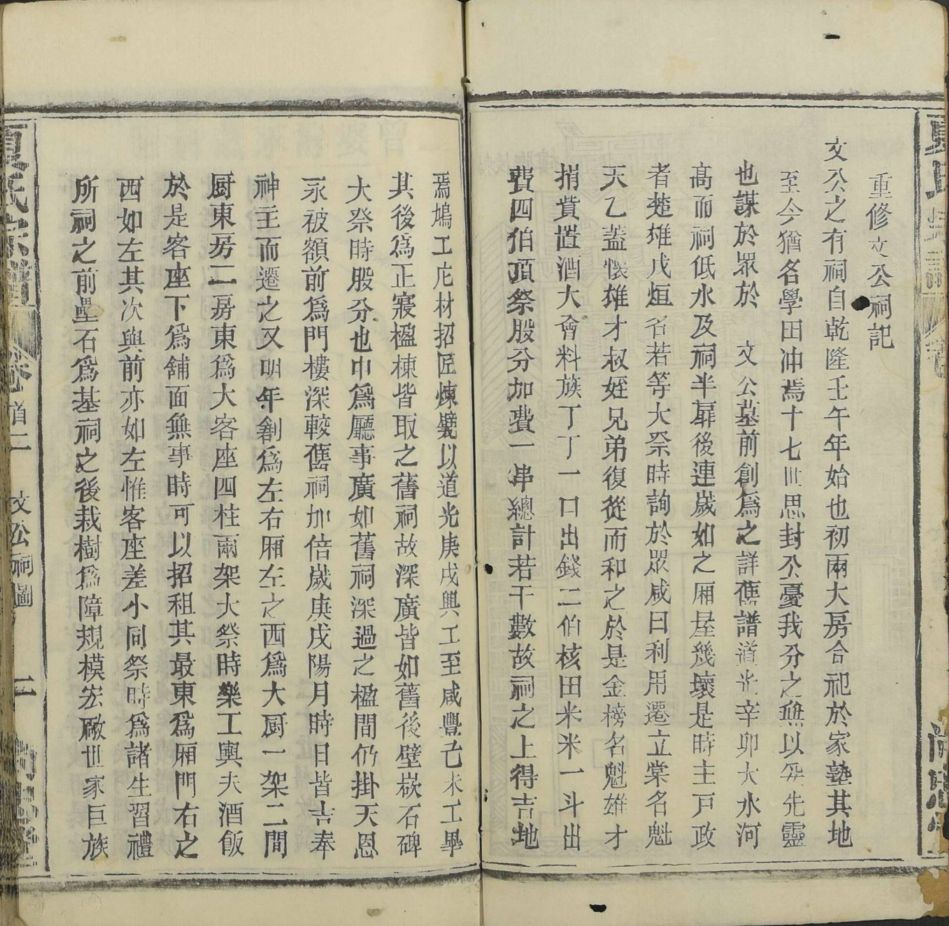 重修文公祠記
文公之有祠自乾隆壬午年始也初兩大房合祀於家塾其地
至今猶名學田沖焉十七世思封公憂我分之無以妥先靈
也謀於眾於 文公墓前創為之詳舊譜道光辛卯大水河
高而祠低水及祠半扉後連歲如之廂屋幾壞是時主戶政
者楚雄戊烜名若等大祭時詢於眾咸曰利用遷立棠名魁
天乙蓋懷雄才叔姪兄弟復從而和之於是金榜名魁雄才
捐貲置酒大會料族丁丁一口出錢二伯核田米米一斗出
費四伯頂祭股分加費一串總計若干數故祠之上得吉地
焉鳩工庀材招匠煉甓以道光庚戌興工至咸豐己未工畢
其後為正寢楹棟皆取之舊祠故深廣皆如舊後壁嵌石碑
大祭時股分也巾為廳事廣如舊祠深過之楹間仍掛天恩
永被額前為門樓深較舊祠加倍歲庚戌陽月時日皆吉奉
神主而遷之又明年創為左右廂左之西為大厨一架二間
厨東房二房東為大客座四柱兩架大祭時樂工輿夫酒飯
於是客座下為舖面無事時可以招租其最東為厢門右之
西如左其次與前亦如左惟客座差小同祭時為諸生習禮
所祠之前壘石為基祠之後栽樹為障規模宏厰世家巨族
夏氏宗譜
首二 文公祠圖 二